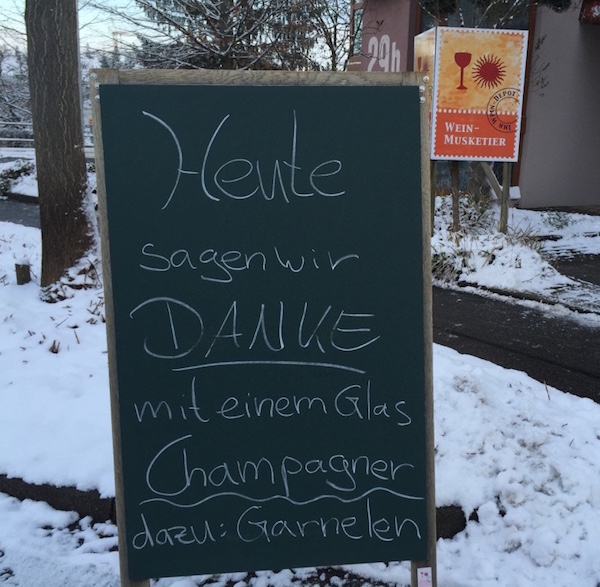 Heute
sagen wir
DANKE
mit einem Glas
Champagner
dazu: Garnelen
29b
WEIN-
MUSKETIER
IHR WEIN-DEPOT